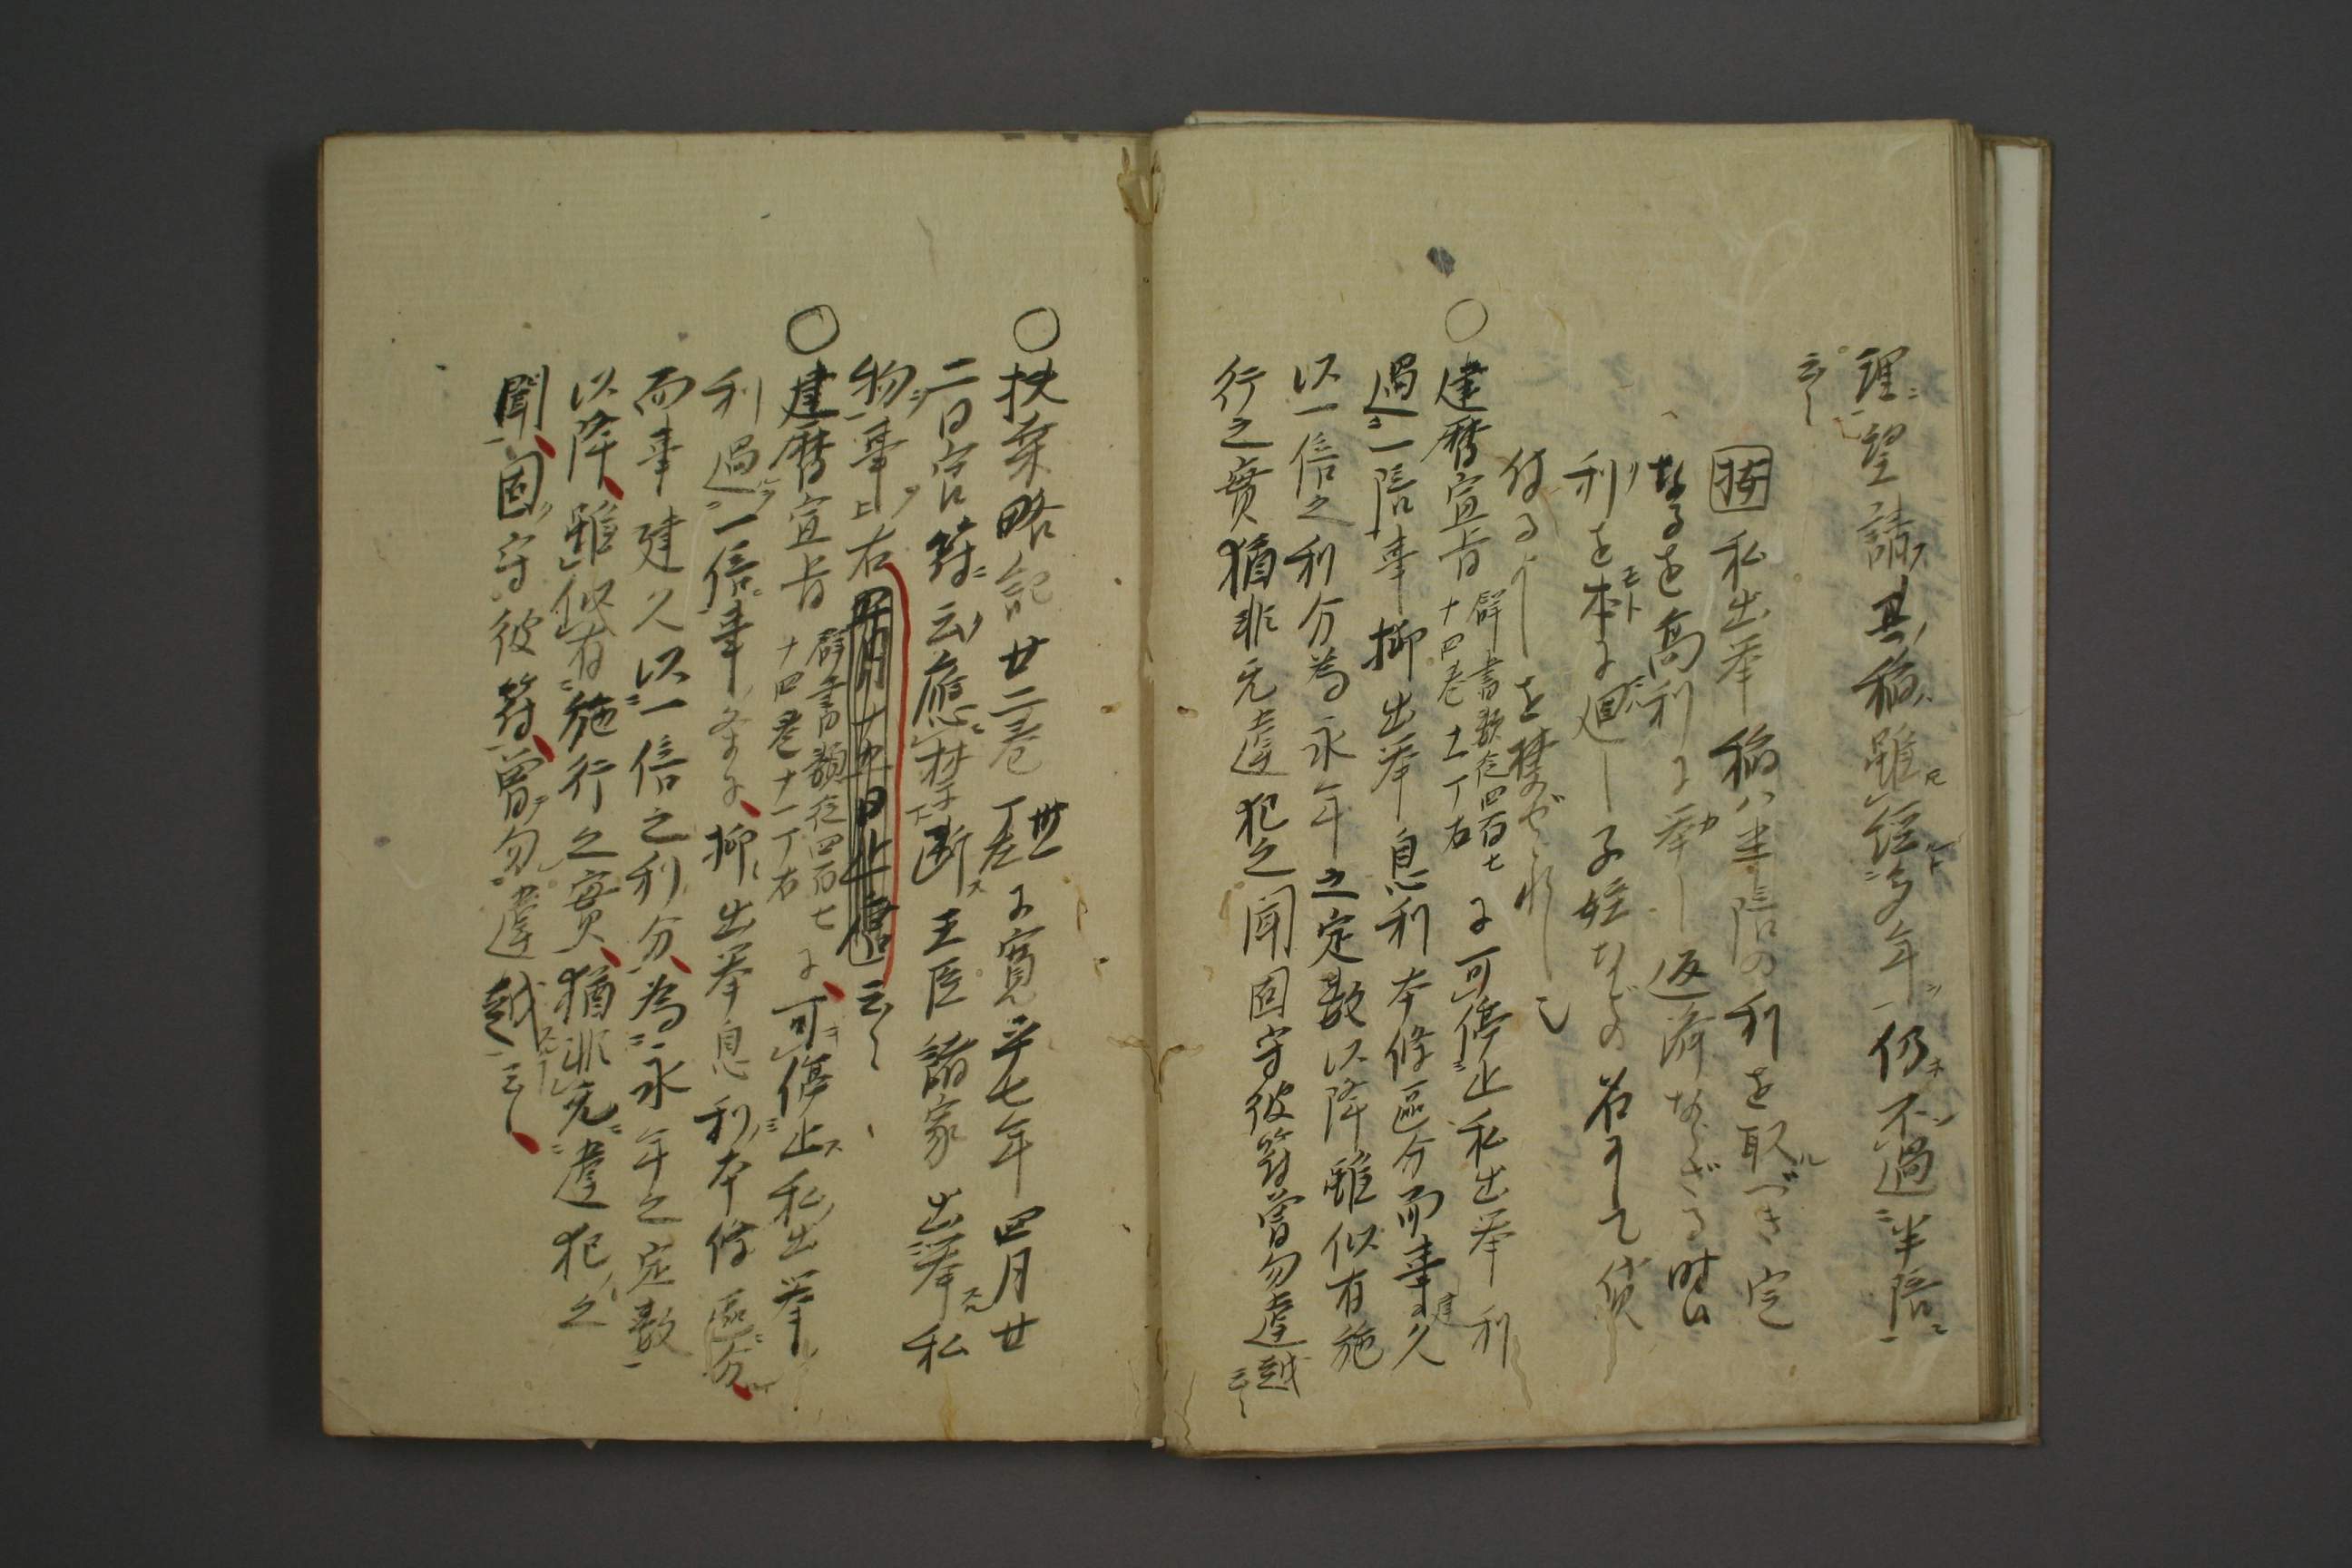 理望請其稲雖経多年仍不過半倍
云々
按私出挙稲ハ半倍の利を取べき定
なるを高利に挙し返済なざる時ハ
利を本に廻し子姪などの名にて貸
付る を禁ぜられし也
○建暦宣旨 群書類従四百七十四巻十一丁右 に可停止私出挙利
過一倍事抑出挙息利本條區分而事建久
以一倍之利分為永年之定数以降雖似有施
行之實猶非无違犯之聞固守彼符曽勿違越云々
○扶桒略記廿二巻 丗一丁左 に寛平七年四月廿
二日官符云應禁断王臣諸家出挙私
物事 右 云々
○建暦宣旨 群書類従四百七十四巻十一丁右 に可停止私出挙
利過一倍事 抑出挙息利本條區分
而事建久以一倍之利分為永年之定数
以降雖似有施行之實猶非无違犯之
聞固守彼符曽勿違越云々